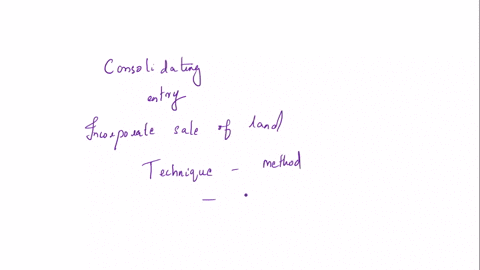 Consolidating
entry
Incorporate sale of land
Technique - method
-